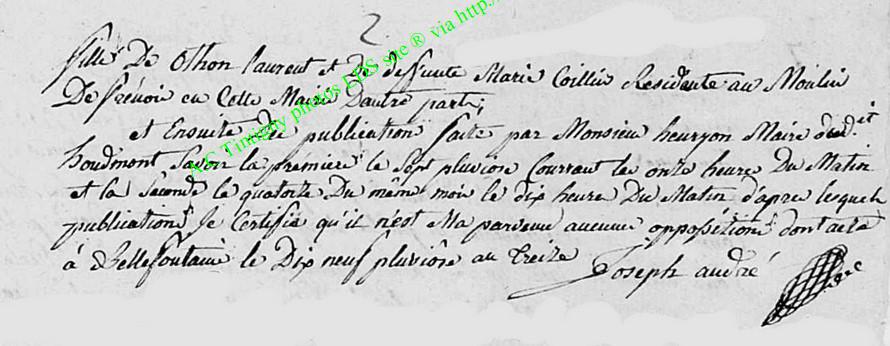 2
fille De othon laurent et de deffunte Marie Collin Residante au Moulin
De frénois en Cette Mairie Dautre part;
et Ensuite de publication faite par Monsieur henryon Maire dudit
houdrmont Savoir la première le Sept pluviose Courrant les onze heure Du Matin
et la Seconde le quatorze Du même mois le dix heure Du Matin d'apre lesquels
publications Je Certifie qu'il n'est Ma parvenu aucune opposition dont acte
à Bellefontaine le Dix neuf pluviôse an treize Joseph andré
A.S Tintigny photos FDS site ® via http:/